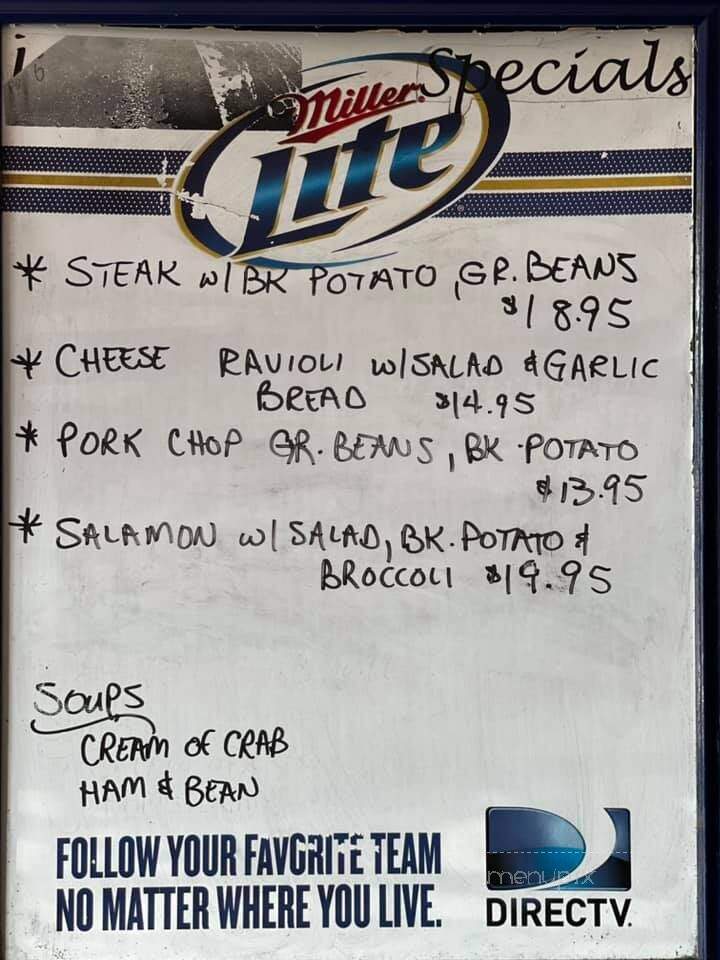 Specials
Miller
Lite
* STEAK w/ BK POTATO, GR. BEANS
$18.95
* CHEESE RAVIOLI w/SALAD & GARLIC
BREAD $14.95
* PORK CHOP GR. BEANS, BK POTATO
$13.95
* SALAMON w/ SALAD, BK. POTATO &
BROCCOLI $19.95
SOUPS
CREAM OF CRAB
HAM & BEAN
FOLLOW YOUR FAVORITE TEAM
NO MATTER WHERE YOU LIVE.
menupix
DIRECTV.